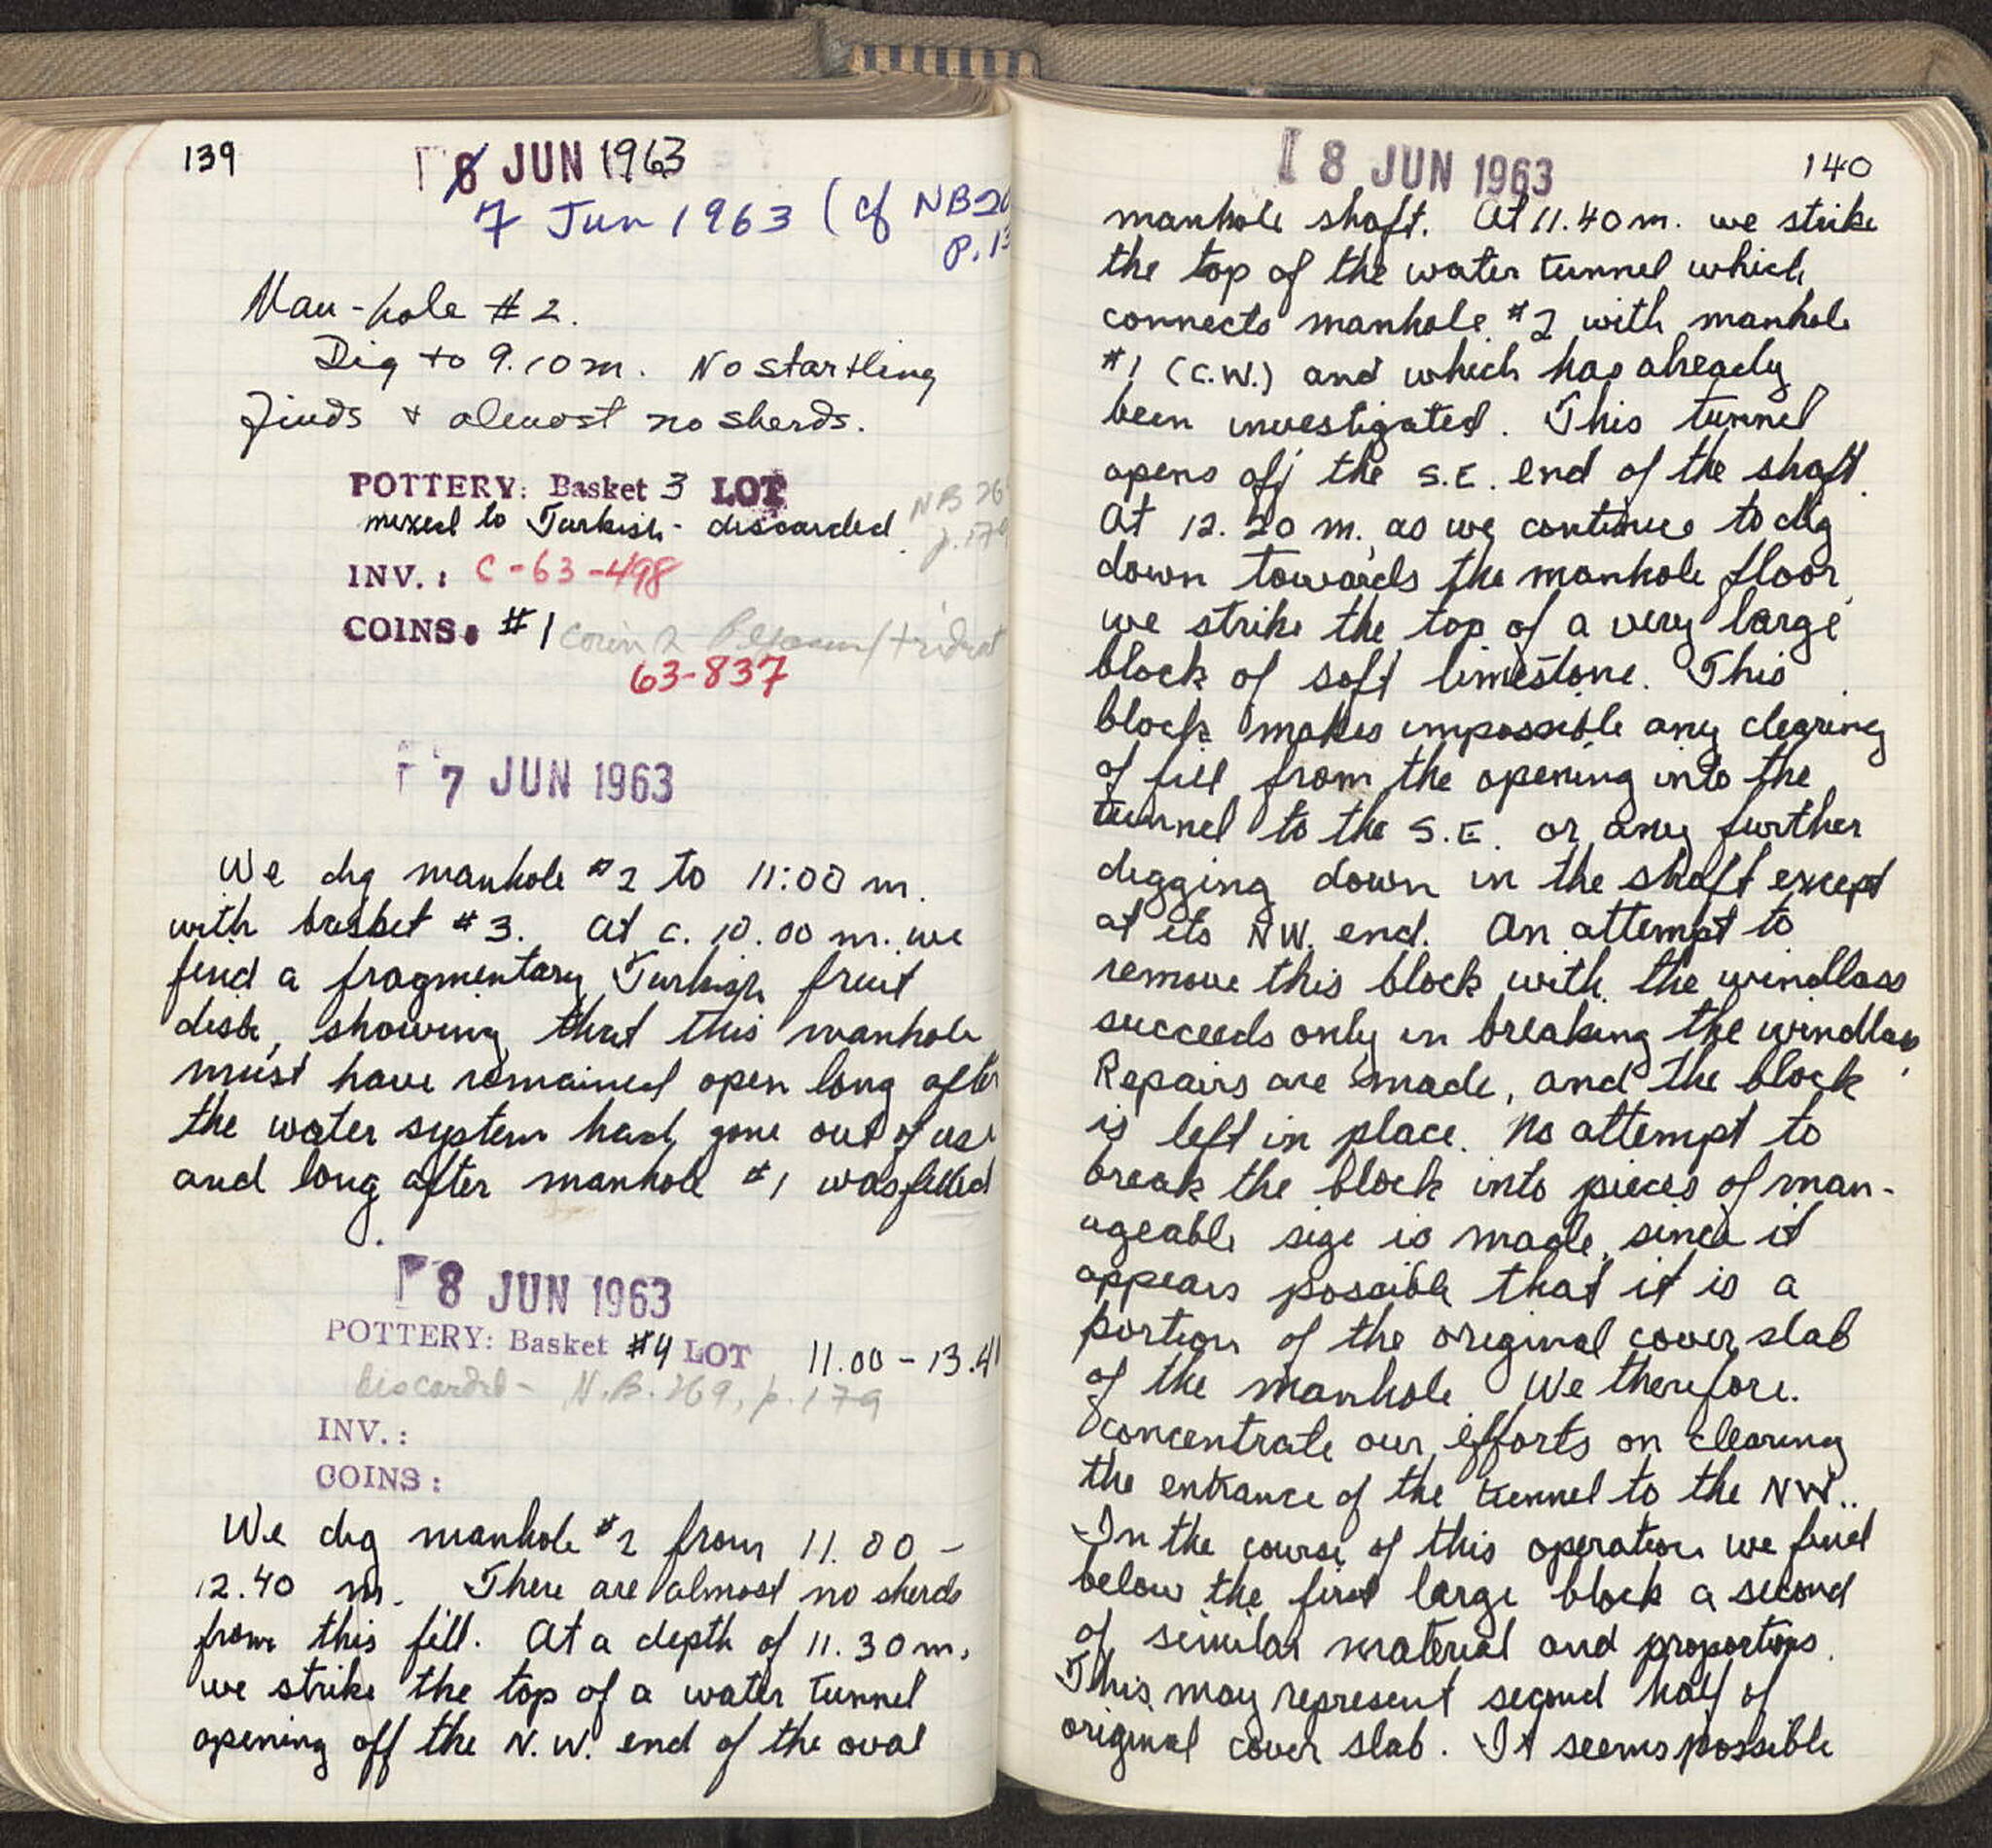 139
6 JUN 1963
7 Jun 1963 (cf NB 26
p. 13
Man-hole #2.
Dig to 9.10 m. No startling
finds & almost no sherds.
POTTERY: Basket 3 LOT
mixed to Turkish - discarded NB 269
p. 179
INV.: C-63-498
COINS: #1 Corinth
63-837
7 JUN 1963
We dig manhole #2 to 11:00 m.
with basket #3. At c. 10.00 m. we
find a fragmentary Turkish fruit
dish, showing that this manhole
must have remained open long after
the water system had gone out of use
and long after manhole #1 was filled
.
8 JUN 1963
POTTERY: Basket #4 LOT 11.00 - 13.4
discarded - N.B. 269, p. 179
INV.:
COINS:
We dig manhole #2 from 11.00 -
12.40 m. There are almost no sherds
from this fill. At a depth of 11.30 m,
we strike the top of a water tunnel
opening off the N.W. end of the oval
8 JUN 1963
140
manhole shaft. At 11.40 m. we strike
the top of the water tunnel which
connects manhole #2 with manhole
#1 (C.W.) and which has already
been investigated. This tunnel
opens off the S.E. end of the shaft.
At 12.20 m., as we continue to dig
down towards the manhole floor,
we strike the top of a very large
block of soft limestone. This
block makes impossible any clearing
of fill from the opening into the
tunnel to the S.E. or any further
digging down in the shaft except
at its NW. end. An attempt to
remove this block with the windlass
succeeds only in breaking the windlass.
Repairs are made, and the block
is left in place. No attempt to
break the block into pieces of man-
ageable size is made, since it
appears possible that it is a
portion of the original cover slab
of the manhole. We therefore
concentrate our efforts on clearing
the entrance of the tunnel to the NW..
In the course of this operation we find
below the first large block a second
of similar material and proportions.
This may represent second half of
original cover slab. It seems possible